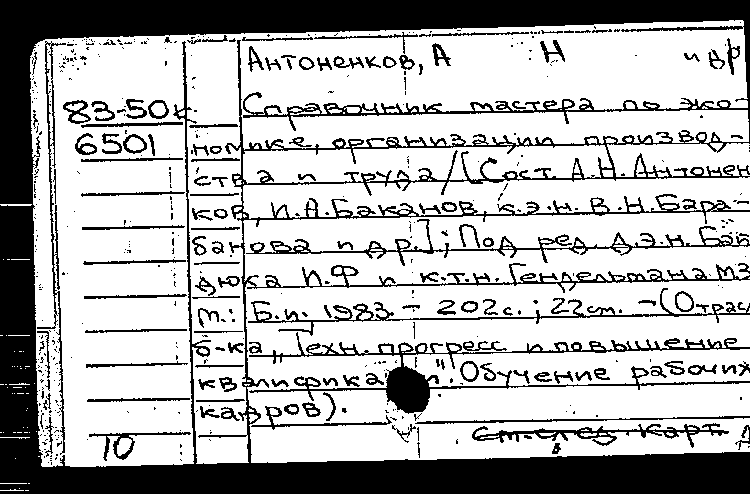 Антоненков, А Н и др
83-50к Справочник мастера по эко-
6501 номике, организации производ-
ства и труда/[Сост. А.Н. Антонен
ков, И.А. Баканов, к.э.н. В.Н. Бара-
банова и др.]; Под ред. д.э.н.
дюка П.Ф и к.т.н. Гендельмана МЗ
М.: Б.и. 1983. - 202с.; 22см. - (Отрас
б-ка „Техн. прогресс и повышение
квалифика ". Обучение рабочих
кадров).
См. след. карт.
10